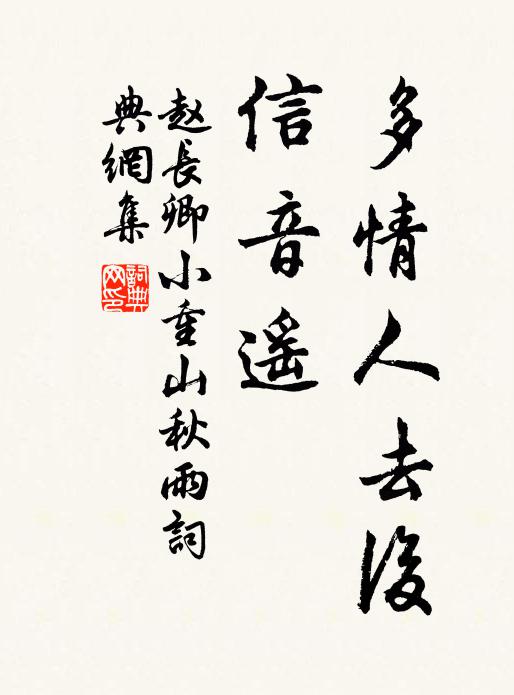 多情人去後
信音遥
赵長卿小重山秋雨詞
典網集
詞典
网印